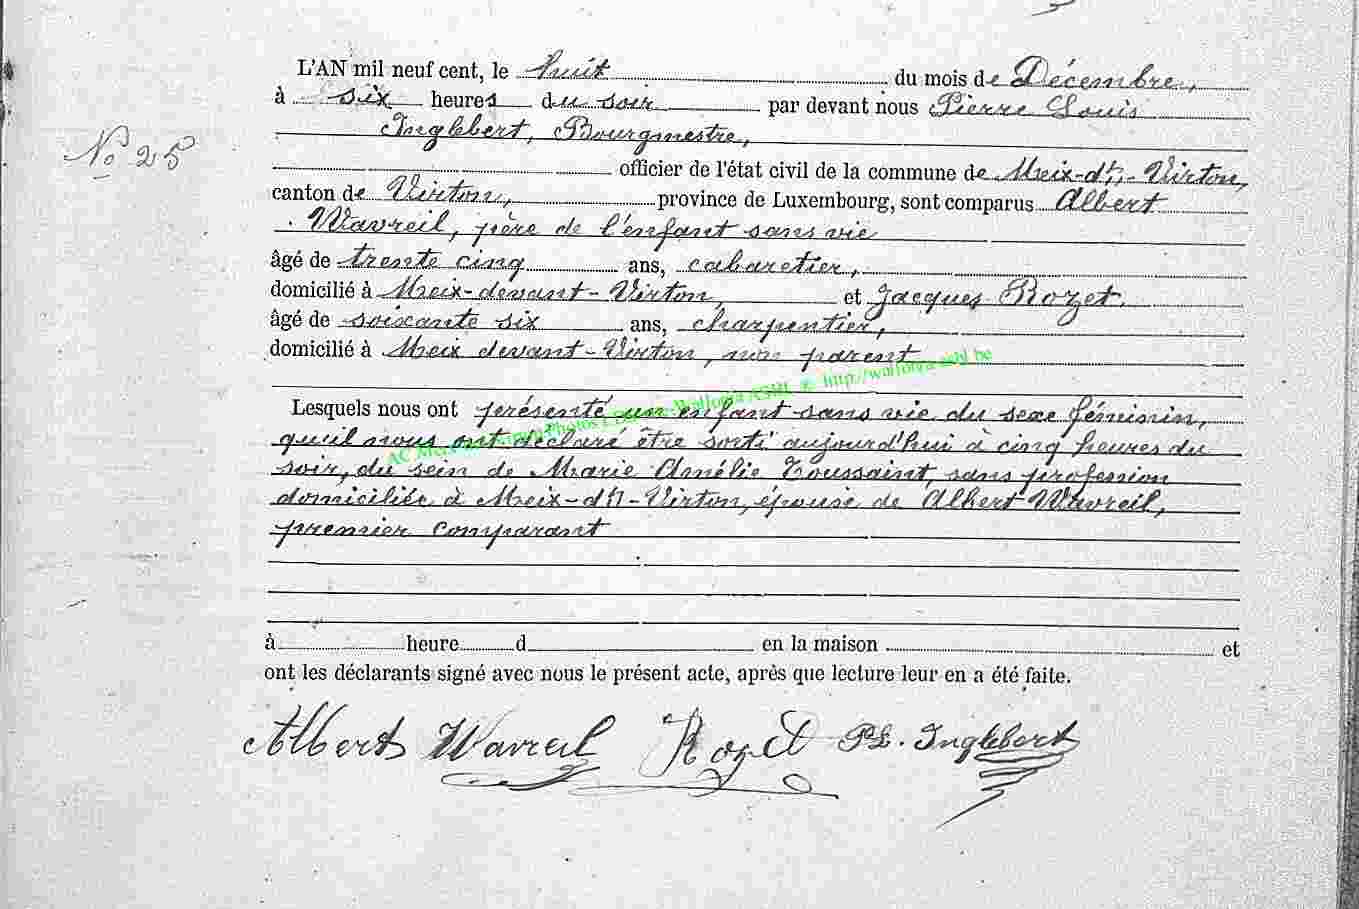 L'AN mil neuf cent, le huit du mois de Décembre,
à six heures du soir par devant nous Pierre Louis
Inglebert, Bourgmestre,
N° 25
officier de l'état civil de la commune de Meix-dt-Virton,
canton de Virton, province de Luxembourg, sont comparus Albert
Wavreil, père de l'enfant sans vie
âgé de trente cinq ans, cabaretier,
domicilié à Meix-devant-Virton, et Jacques Rozet.
âgé de soixante six ans, charpentier,
domicilié à Meix devant-Virton, non parent
Lesquels nous ont présenté un enfant sans vie du sexe féminin,
qu'il nous ont déclaré être sorti aujourd'hui à cinq heures du
soir, du sein de Marie Amélie Toussaint, sans profession
domiciliée à Meix-dt-Virton, épouse de Albert Wavreil,
premier comparant
AC Photos Wallonia ASBL © http://wallonia-asbl.be
à heure d en la maison et
ont les déclarants signé avec nous le présent acte, après que lecture leur en a été faite.
Albert Wavreil Rozet PL. Inglebert